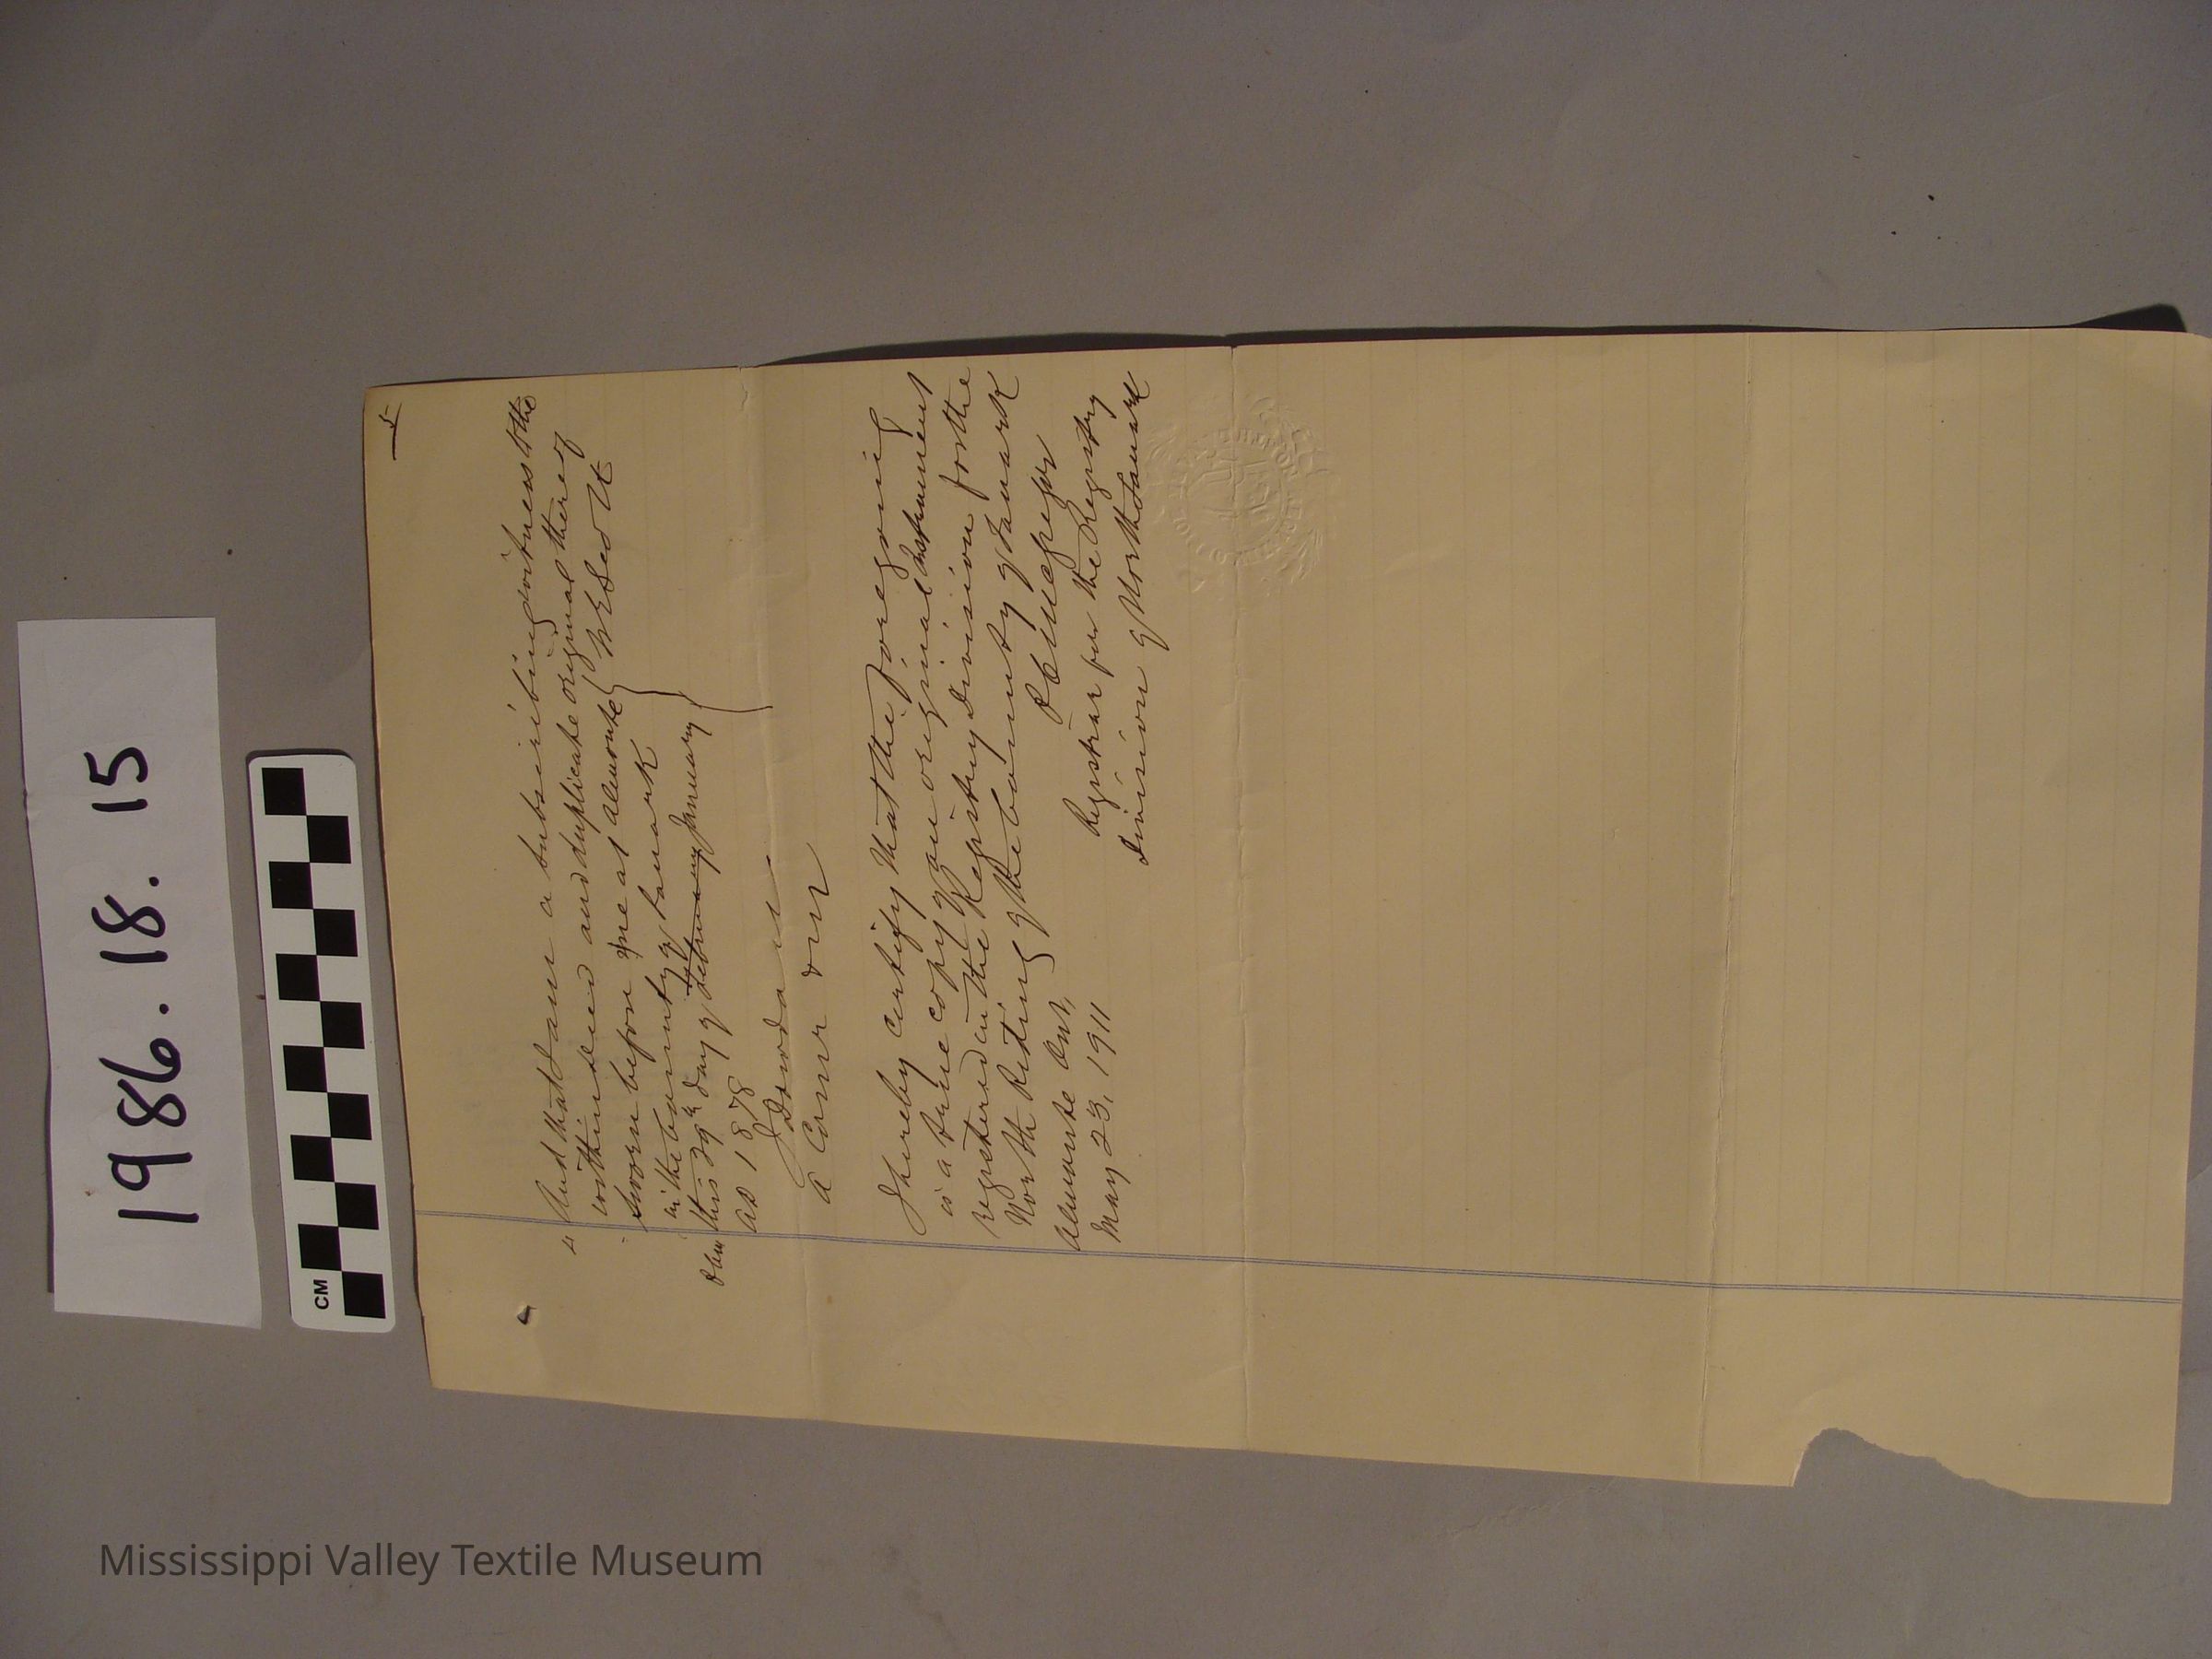 1986.18.15
CM
5
4 And that I am a subscribing witness to the
within deed and duplicate original thereof
Sworn before me at Almonte
in the County of Lanark
this 29th day of February January
AD 1878
J Dowdall
a Comr &c
I hereby certify that the foregoing
is a true copy of an original Instrument
registered in the Registry Division for the
North Riding of the County of Lanark
Almonte Ont,
May 23, 1911
Registrar for the Registry
Division of North Lanark
Mississippi Valley Textile Museum